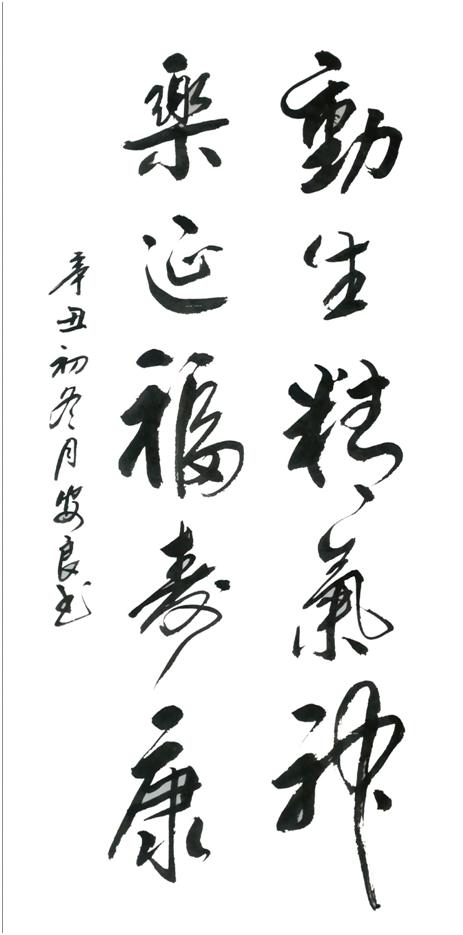 動生精氣神
樂延福寿康
辛丑初冬月安良书